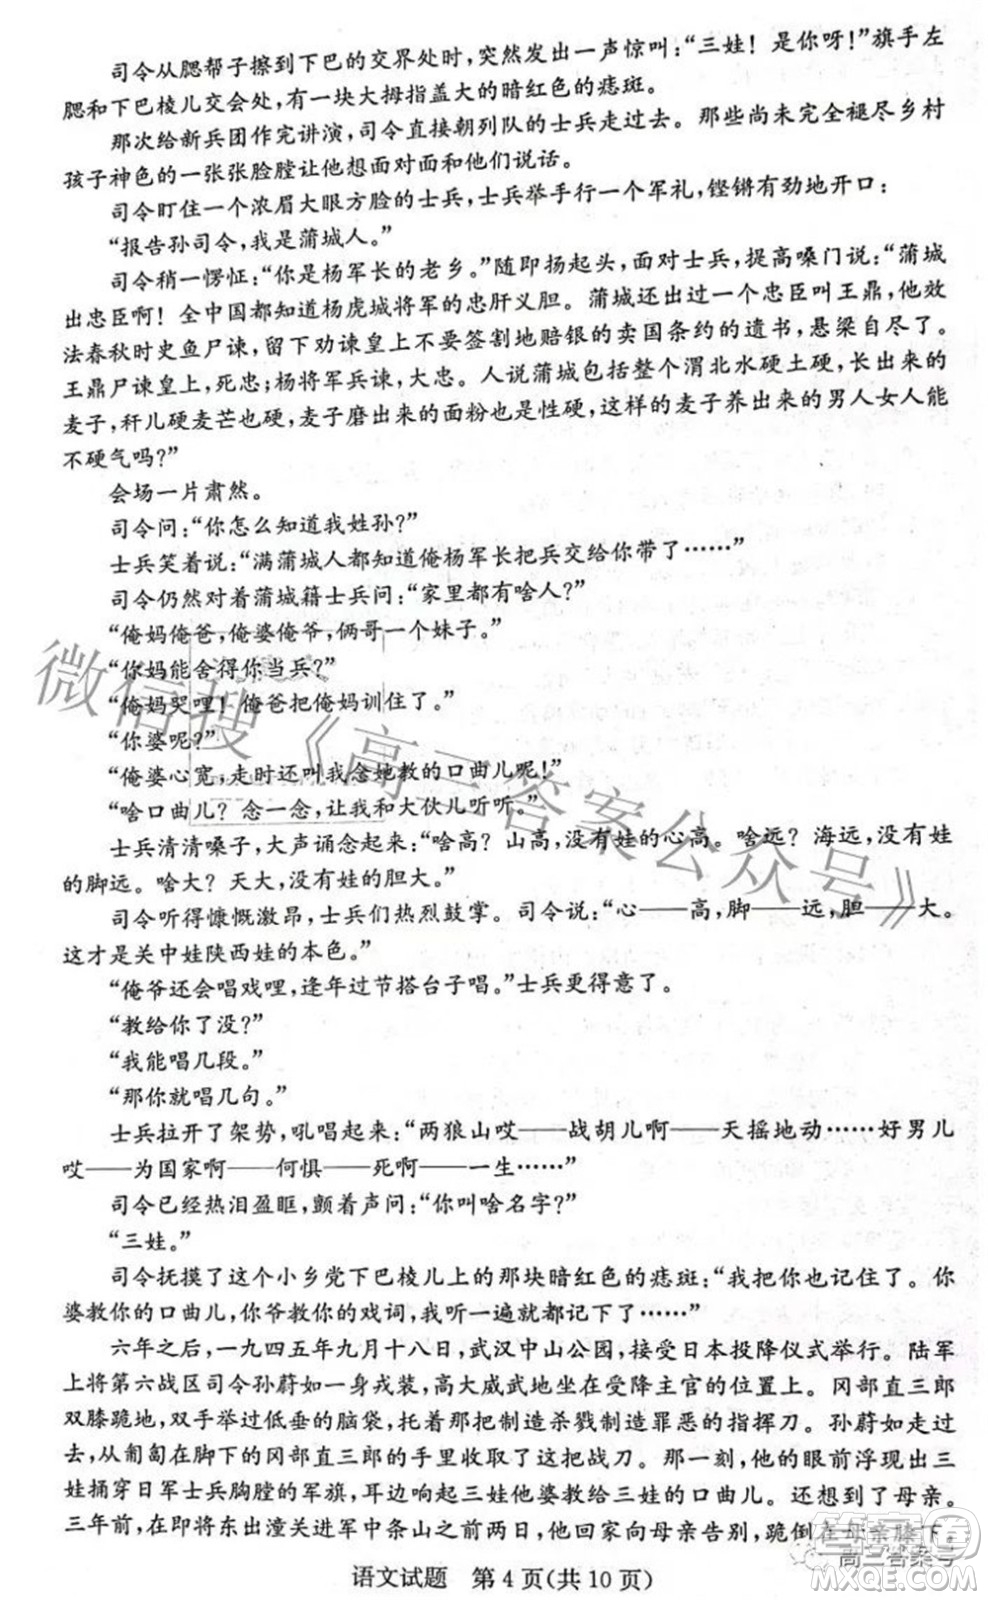 司令从腮帮子擦到下巴的交界处时，突然发出一声惊叫：“三娃！是你呀！”旗手左
腮和下巴棱儿交会处，有一块大拇指盖大的暗红色的痣斑。
那次给新兵团作完讲演，司令直接朝列队的士兵走过去。那些尚未完全褪尽乡村
孩子神色的一张张脸膛让他想面对面和他们说话。
司令盯住一个浓眉大眼方脸的士兵，士兵举手行一个军礼，铿锵有劲地开口：
“报告孙司令，我是蒲城人。”
司令稍一愣怔：“你是杨军长的老乡。”随即扬起头，面对士兵，提高嗓门说：“蒲城
出忠臣啊！全中国都知道杨虎城将军的忠肝义胆。蒲城还出过一个忠臣叫王鼎，他效
法春秋时史鱼尸谏，留下劝谏皇上不要签割地赔银的卖国条约的遗书，悬梁自尽了。
王鼎尸谏皇上，死忠；杨将军兵谏，大忠。人说蒲城包括整个渭北水硬土硬，长出来的
麦子，秆儿硬麦芒也硬，麦子磨出来的面粉也是性硬，这样的麦子养出来的男人女人能
不硬气吗？”
会场一片肃然。
司令问：“你怎么知道我姓孙？”
士兵笑着说：“满蒲城人都知道俺杨军长把兵交给你带了……”
司令仍然对着蒲城籍士兵问：“家里都有啥人？”
“俺妈俺爸，俺婆俺爷，俩哥一个妹子。”
“你妈能舍得你当兵？”
“俺妈哭哩！俺爸把俺妈训住了。”
“你婆呢？”
“俺婆心宽，走时还叫我念她教的口曲儿呢！”
“啥口曲儿？念一念，让我和大伙儿听听。”
士兵清清嗓子，大声诵念起来：“啥高？山高，没有娃的心高。啥远？海远，没有娃
的脚远。啥大？天大，没有娃的胆大。”
司令听得慷慨激昂，士兵们热烈鼓掌。司令说：“心——高，脚——远，胆——大。
这才是关中娃陕西娃的本色。”
“俺爷还会唱戏哩，逢年过节搭台子唱。”士兵更得意了。
“教给你了没？”
“我能唱几段。”
“那你就唱几句。”
士兵拉开了架势，吼唱起来：“两狼山哎——战胡儿啊——天摇地动……好男儿
哎——为国家啊——何惧——死啊——一生……”
司令已经热泪盈眶，颤着声问：“你叫啥名字？”
“三娃。”
司令抚摸了这个小乡党下巴棱儿上的那块暗红色的痣斑：“我把你也记住了。你
婆教你的口曲儿，你爷教你的戏词，我听一遍就都记下了……”
六年之后，一九四五年九月十八日，武汉中山公园，接受日本投降仪式举行。陆军
上将第六战区司令孙蔚如一身戎装，高大威武地坐在受降主官的位置上。冈部直三郎
双膝跪地，双手举过低垂的脑袋，托着那把制造杀戮制造罪恶的指挥刀。孙蔚如走过
去，从匍匐在脚下的冈部直三郎的手里收取了这把战刀。那一刻，他的眼前浮现出三
娃捅穿日军士兵胸膛的军旗，耳边响起三娃他婆教给三娃的口曲儿。还想到了母亲。
三年前，在即将东出潼关进军中条山之前两日，他回家向母亲告别，跪倒在母亲膝下。
语文试题 第 4 页(共 10 页)
微信搜《高三答案公众号》
高三答案号
答案圈
MXQE.COM